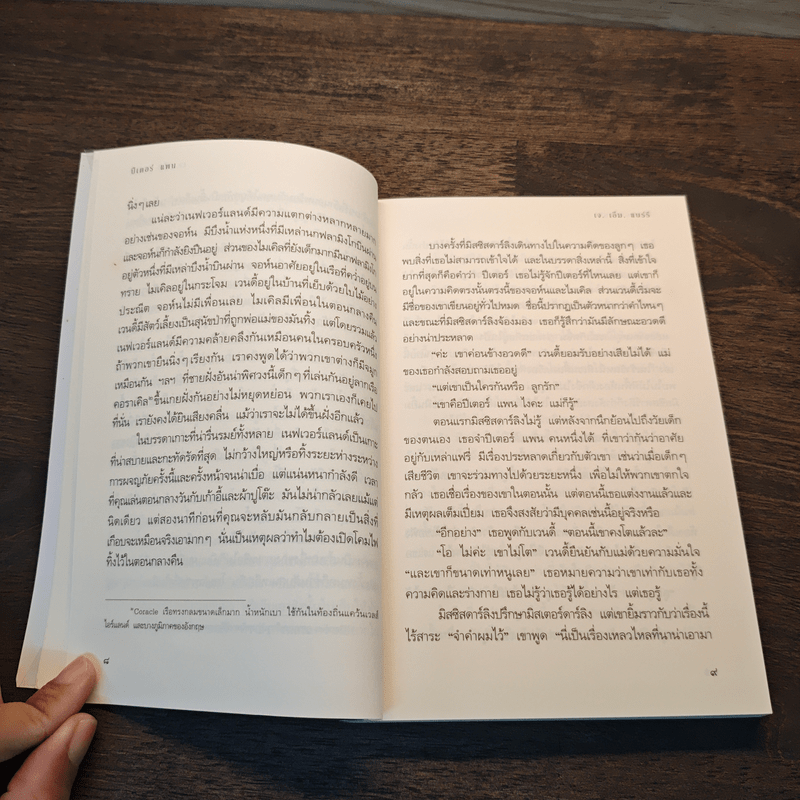 ปีเตอร์ แพน
นิ่งๆเลย
แน่ละว่าเนฟเวอร์แลนด์มีความแตกต่างหลากหลายมาก
อย่างเช่นของจอห์น มีบึงน้ำแห่งหนึ่งที่มีเหล่านกฟลามิงโกบินผ่าน
และจอห์นก็กำลังยิงปืนอยู่ ส่วนของไมเคิลที่ยังเด็กมากมีนกฟลามิงโก
อยู่ตัวหนึ่งที่มีเหล่าบึงน้ำบินผ่าน จอห์นอาศัยอยู่ในเรือที่คว่ำอยู่บน
ทราย ไมเคิลอยู่ในกระโจม เวนดี้อยู่ในบ้านที่เย็บด้วยใบไม้อย่าง
ประณีต จอห์นไม่มีเพื่อนเลย ไมเคิลมีเพื่อนในตอนกลางคืน
เวนดี้มีสัตว์เลี้ยงเป็นสุนัขป่าที่ถูกพ่อแม่ของมันทิ้ง แต่โดยรวมแล้ว
เนฟเวอร์แลนด์มีความคล้ายคลึงกันเหมือนคนในครอบครัวหนึ่ง
ถ้าพวกเขายืนนิ่งๆ เรียงกัน เราคงพูดได้ว่าพวกเขาต่างก็มีจมูก
เหมือนกัน ฯลฯ ที่ชายฝั่งอันน่าพิศวงนี้เด็กๆ ที่เล่นกันอยู่ลากเรือ
คอราเคิล*ขึ้นเกยฝั่งกันอย่างไม่หยุดหย่อน พวกเราเองก็เคยไป
ที่นั่น เรายังคงได้ยินเสียงคลื่น แม้ว่าเราจะไม่ได้ขึ้นฝั่งอีกแล้ว
ในบรรดาเกาะที่น่ารื่นรมย์ทั้งหลาย เนฟเวอร์แลนด์เป็นเกาะ
ที่น่าสบายและกะทัดรัดที่สุด ไม่กว้างใหญ่หรือทิ้งระยะห่างระหว่าง
การผจญภัยครั้งนี้และครั้งหน้าจนน่าเบื่อ แต่แน่นหนากำลังดี เวลา
ที่คุณเล่นตอนกลางวันกับเก้าอี้และผ้าปูโต๊ะ มันไม่น่ากลัวเลยแม้แต่
นิดเดียว แต่สองนาทีก่อนที่คุณจะหลับมันกลับกลายเป็นสิ่งที่
เกือบจะเหมือนจริงเอามากๆ นั่นเป็นเหตุผลว่าทำไมต้องเปิดโคมไฟ
ทิ้งไว้ในตอนกลางคืน
*Coracle เรือทรงกลมขนาดเล็กมาก น้ำหนักเบา ใช้กันในท้องถิ่นแคว้นเวลส์
ไอร์แลนด์ และบางภูมิภาคของอังกฤษ
๘
เจ. เอ็ม. แบร์รี
บางครั้งที่มิสซิสดาร์ลิงเดินทางไปในความคิดของลูกๆ เธอ
พบสิ่งที่เธอไม่สามารถเข้าใจได้ และในบรรดาสิ่งเหล่านี้ สิ่งที่เข้าใจ
ยากที่สุดก็คือคำว่า ปีเตอร์ เธอไม่รู้จักปีเตอร์ที่ไหนเลย แต่เขาก็
อยู่ในความคิดตรงนั้นตรงนี้ของจอห์นและไมเคิล ส่วนเวนดี้เริ่มจะ
มีชื่อของเขาเขียนอยู่ทั่วไปหมด ชื่อนี้ปรากฏเป็นตัวหนากว่าคำไหนๆ
และขณะที่มิสซิสดาร์ลิงจ้องมอง เธอก็รู้สึกว่ามันมีลักษณะอวดดี
อย่างน่าประหลาด
“ค่ะ เขาค่อนข้างอวดดี” เวนดี้ยอมรับอย่างเสียไม่ได้ แม่
ของเธอกำลังสอบถามเธออยู่
“แต่เขาเป็นใครกันหรือ ลูกรัก”
“เขาคือปีเตอร์ แพน ไงคะ แม่ก็รู้”
ตอนแรกมิสซิสดาร์ลิงไม่รู้ แต่หลังจากนึกย้อนไปถึงวัยเด็ก
ของตนเอง เธอจำปีเตอร์ แพน คนหนึ่งได้ ที่เขาว่ากันว่าอาศัย
อยู่กับเหล่าแฟรี่ มีเรื่องประหลาดเกี่ยวกับตัวเขา เช่นว่าเมื่อเด็กๆ
เสียชีวิต เขาจะร่วมทางไปด้วยระยะหนึ่ง เพื่อไม่ให้พวกเขาตกใจ
กลัว เธอเชื่อเรื่องของเขาในตอนนั้น แต่ตอนนี้เธอแต่งงานแล้วและ
มีเหตุผลเต็มเปี่ยม เธอจึงสงสัยว่ามีบุคคลเช่นนี้อยู่จริงหรือ
“อีกอย่าง” เธอพูดกับเวนดี้ “ตอนนี้เขาคงโตแล้วละ”
“โอ ไม่ค่ะ เขาไม่โต” เวนดี้ยืนยันกับแม่ด้วยความมั่นใจ
“และเขาก็ขนาดเท่าหนูเลย” เธอหมายความว่าเขาเท่ากับเธอทั้ง
ความคิดและร่างกาย เธอไม่รู้ว่าเธอรู้ได้อย่างไร แต่เธอรู้
มิสซิสดาร์ลิงปรึกษามิสเตอร์ดาร์ลิง แต่เขายิ้มราวกับว่าเรื่องนี้
ไร้สาระ “จำคำผมไว้” เขาพูด “นี่เป็นเรื่องเหลวไหลที่นาน่าเอามา
๙